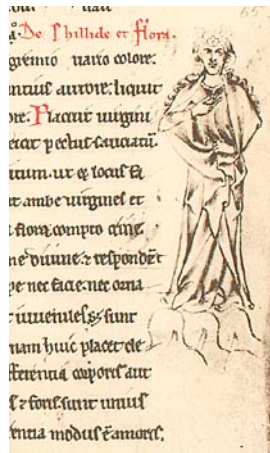 De Phillide et Flora.
gremio uario colore.
ntius aurore. liquit
ore. Placuit uirgini
pectus sauciatum.
itum. ut & locus &
t ambe uirgines et
flora compto crine.
ne diuine. & respondēt
pe nec facie. nec orna
t iuueniles & sunt
nam huic placet cle
fferentia corporis aut
s & foris. sunt unius
rentia modus ē amoris.
65